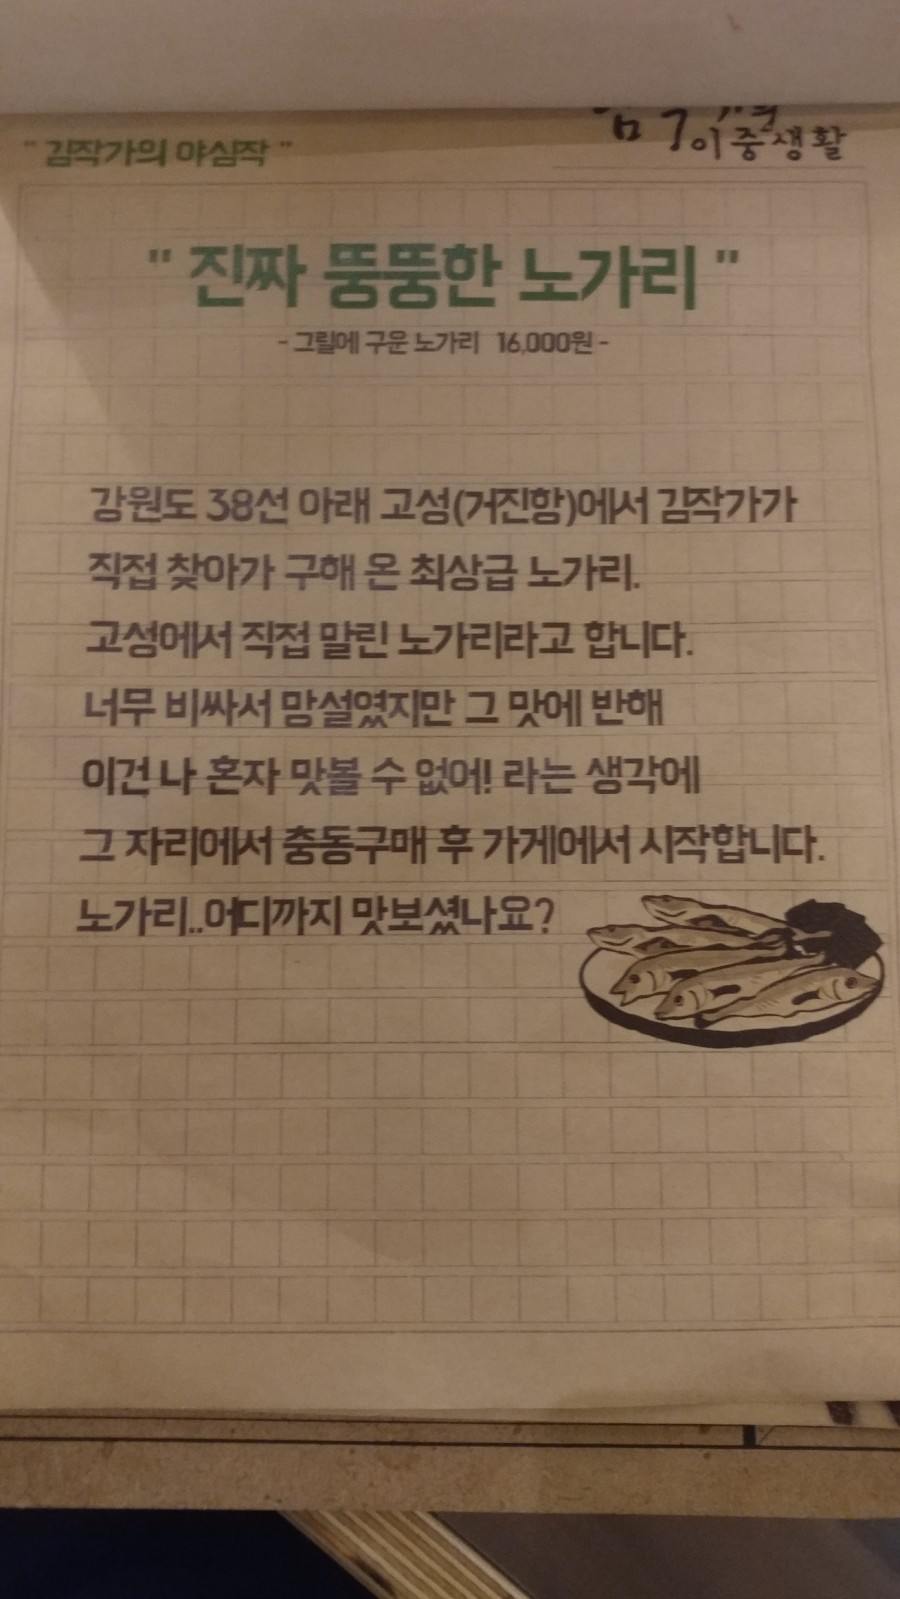 " 김작가의 야심작 "
이중생활
" 진짜 뚱뚱한 노가리 "
- 그릴에 구운 노가리 16,000원 -
강원도 38선 아래 고성(거진항)에서 김작가가
직접 찾아가 구해 온 최상급 노가리.
고성에서 직접 말린 노가리라고 합니다.
너무 비싸서 망설였지만 그 맛에 반해
이건 나 혼자 맛볼 수 없어! 라는 생각에
그 자리에서 충동구매 후 가게에서 시작합니다.
노가리..어디까지 맛보셨나요?